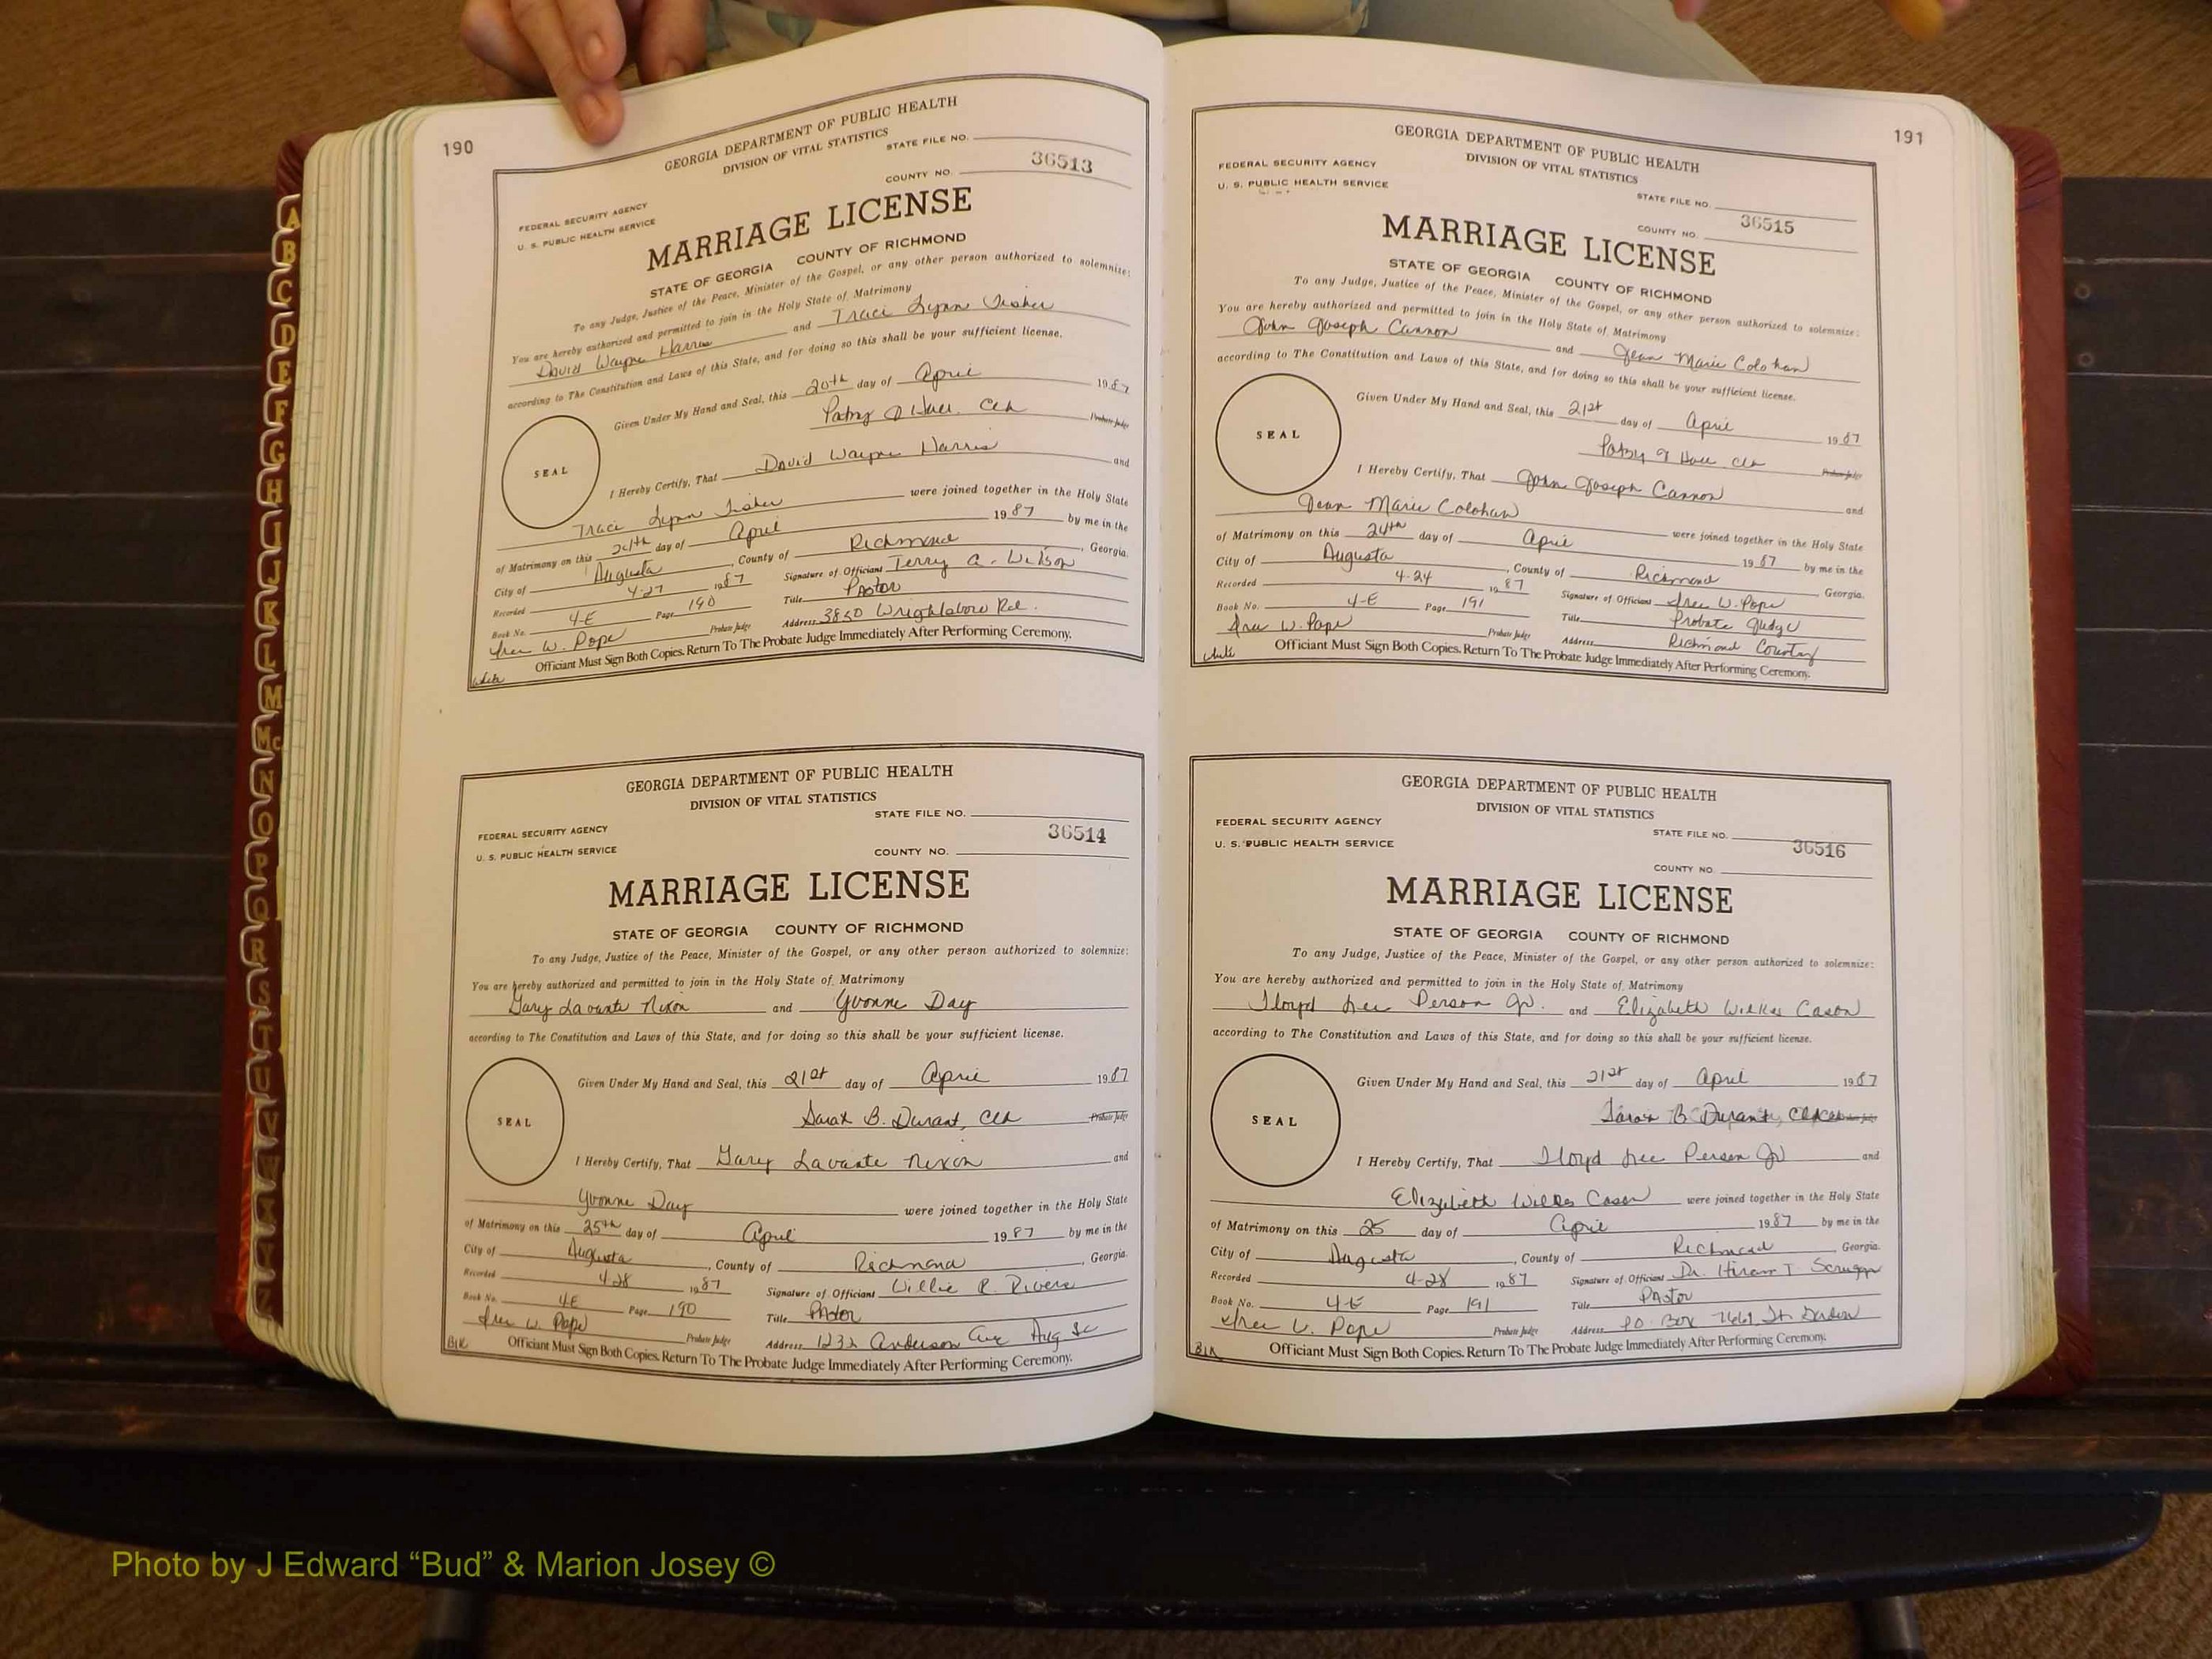 190
GEORGIA DEPARTMENT OF PUBLIC HEALTH
DIVISION OF VITAL STATISTICS
STATE FILE NO.
36513
COUNTY NO.
FEDERAL SECURITY AGENCY
U. S. PUBLIC HEALTH SERVICE
MARRIAGE LICENSE
STATE OF GEORGIA COUNTY OF RICHMOND
To any Judge, Justice of the Peace, Minister of the Gospel, or any other person authorized to solemnize:
You are hereby authorized and permitted to join in the Holy State of Matrimony
David Wayne Harris and Traci Lynn Fisher
according to The Constitution and Laws of this State, and for doing so this shall be your sufficient license.
Given Under My Hand and Seal, this 20th day of April 1987
Patsy J Hall Clk Probate Judge
SEAL
I Hereby Certify, That David Wayne Harris and
Traci Lynn Fisher were joined together in the Holy State
of Matrimony on this day of April 1987 by me in the
City of Augusta, County of Richmond, Georgia.
Recorded 4-27 1987 Signature of Officiant Terry A. Wilson
Book No. 4-E Page 190 Title Pastor
W. Pope Probate Judge Address 3850 Wrightsboro Rd.
Officiant Must Sign Both Copies. Return To The Probate Judge Immediately After Performing Ceremony.
White
GEORGIA DEPARTMENT OF PUBLIC HEALTH
DIVISION OF VITAL STATISTICS
STATE FILE NO.
FEDERAL SECURITY AGENCY
36514
U. S. PUBLIC HEALTH SERVICE
COUNTY NO.
MARRIAGE LICENSE
STATE OF GEORGIA COUNTY OF RICHMOND
To any Judge, Justice of the Peace, Minister of the Gospel, or any other person authorized to solemnize:
You are hereby authorized and permitted to join in the Holy State of Matrimony
Gary Lavante Nixon and Yvonne Day
according to The Constitution and Laws of this State, and for doing so this shall be your sufficient license.
Given Under My Hand and Seal, this 21st day of April 1987
Sarah B. Durant, Clk Probate Judge
SEAL
I Hereby Certify, That Gary Lavante Nixon and
Yvonne Day were joined together in the Holy State
of Matrimony on this 25th day of April 1987 by me in the
City of Augusta, County of Richmond, Georgia.
Recorded 4-28 1987 Signature of Officiant Willie R. Rivers
Book No. 4E Page 190 Title Pastor
W. Pope Probate Judge Address 1232 Anderson Ave Aug
Officiant Must Sign Both Copies. Return To The Probate Judge Immediately After Performing Ceremony.
Blk
191
GEORGIA DEPARTMENT OF PUBLIC HEALTH
DIVISION OF VITAL STATISTICS
FEDERAL SECURITY AGENCY
U. S. PUBLIC HEALTH SERVICE
STATE FILE NO.
36515
COUNTY NO.
MARRIAGE LICENSE
STATE OF GEORGIA COUNTY OF RICHMOND
To any Judge, Justice of the Peace, Minister of the Gospel, or any other person authorized to solemnize:
You are hereby authorized and permitted to join in the Holy State of Matrimony
John Joseph Cannon and Jean Marie Colohan
according to The Constitution and Laws of this State, and for doing so this shall be your sufficient license.
Given Under My Hand and Seal, this 21st day of April 1987
Patsy J Hall Clk Probate Judge
SEAL
I Hereby Certify, That John Joseph Cannon and
Jean Marie Colohan were joined together in the Holy State
of Matrimony on this 24th day of April 1987 by me in the
City of Augusta, County of Richmond Georgia.
Recorded 4-24 1987 Signature of Officiant W. Pope
Book No. 4-E Page 191 Title Probate Judge
W. Pope Probate Judge Address Richmond County
Officiant Must Sign Both Copies. Return To The Probate Judge Immediately After Performing Ceremony.
White
GEORGIA DEPARTMENT OF PUBLIC HEALTH
DIVISION OF VITAL STATISTICS
FEDERAL SECURITY AGENCY
STATE FILE NO.
U. S. PUBLIC HEALTH SERVICE
36516
COUNTY NO.
MARRIAGE LICENSE
STATE OF GEORGIA COUNTY OF RICHMOND
To any Judge, Justice of the Peace, Minister of the Gospel, or any other person authorized to solemnize:
You are hereby authorized and permitted to join in the Holy State of Matrimony
Floyd Lee Person Jr. and Elizabeth Wilkes Cason
according to The Constitution and Laws of this State, and for doing so this shall be your sufficient license.
Given Under My Hand and Seal, this 21st day of April 1987
Sarah B Durant, Clk
SEAL
I Hereby Certify, That Floyd Lee Person Jr and
Elizabeth Wilkes Cason were joined together in the Holy State
of Matrimony on this 25 day of April 1987 by me in the
City of Augusta, County of Richmond, Georgia.
Recorded 4-28 1987 Signature of Officiant Dr. Hiram T Scruggs
Book No. 4-E Page 191 Title Pastor
Pope Probate Judge Address P.O. Box
Officiant Must Sign Both Copies. Return To The Probate Judge Immediately After Performing Ceremony.
Blk
A
B
C
D
E
F
G
H
I
J
K
L
M
Mc
N
O
P
Q
R
S
T
U
V
W
Photo by J Edward “Bud” & Marion Josey ©